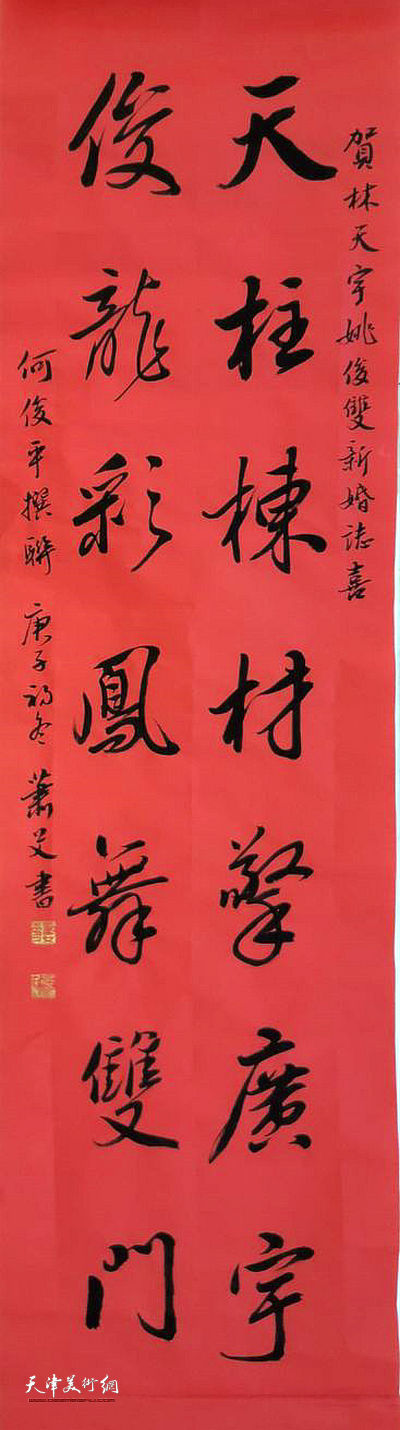 賀林天宇姚俊雙新婚誌喜
天柱棟材擎廣宇
俊龍彩鳳舞雙門
何俊平撰聯 庚子初冬 蕭艾書
天津美術網